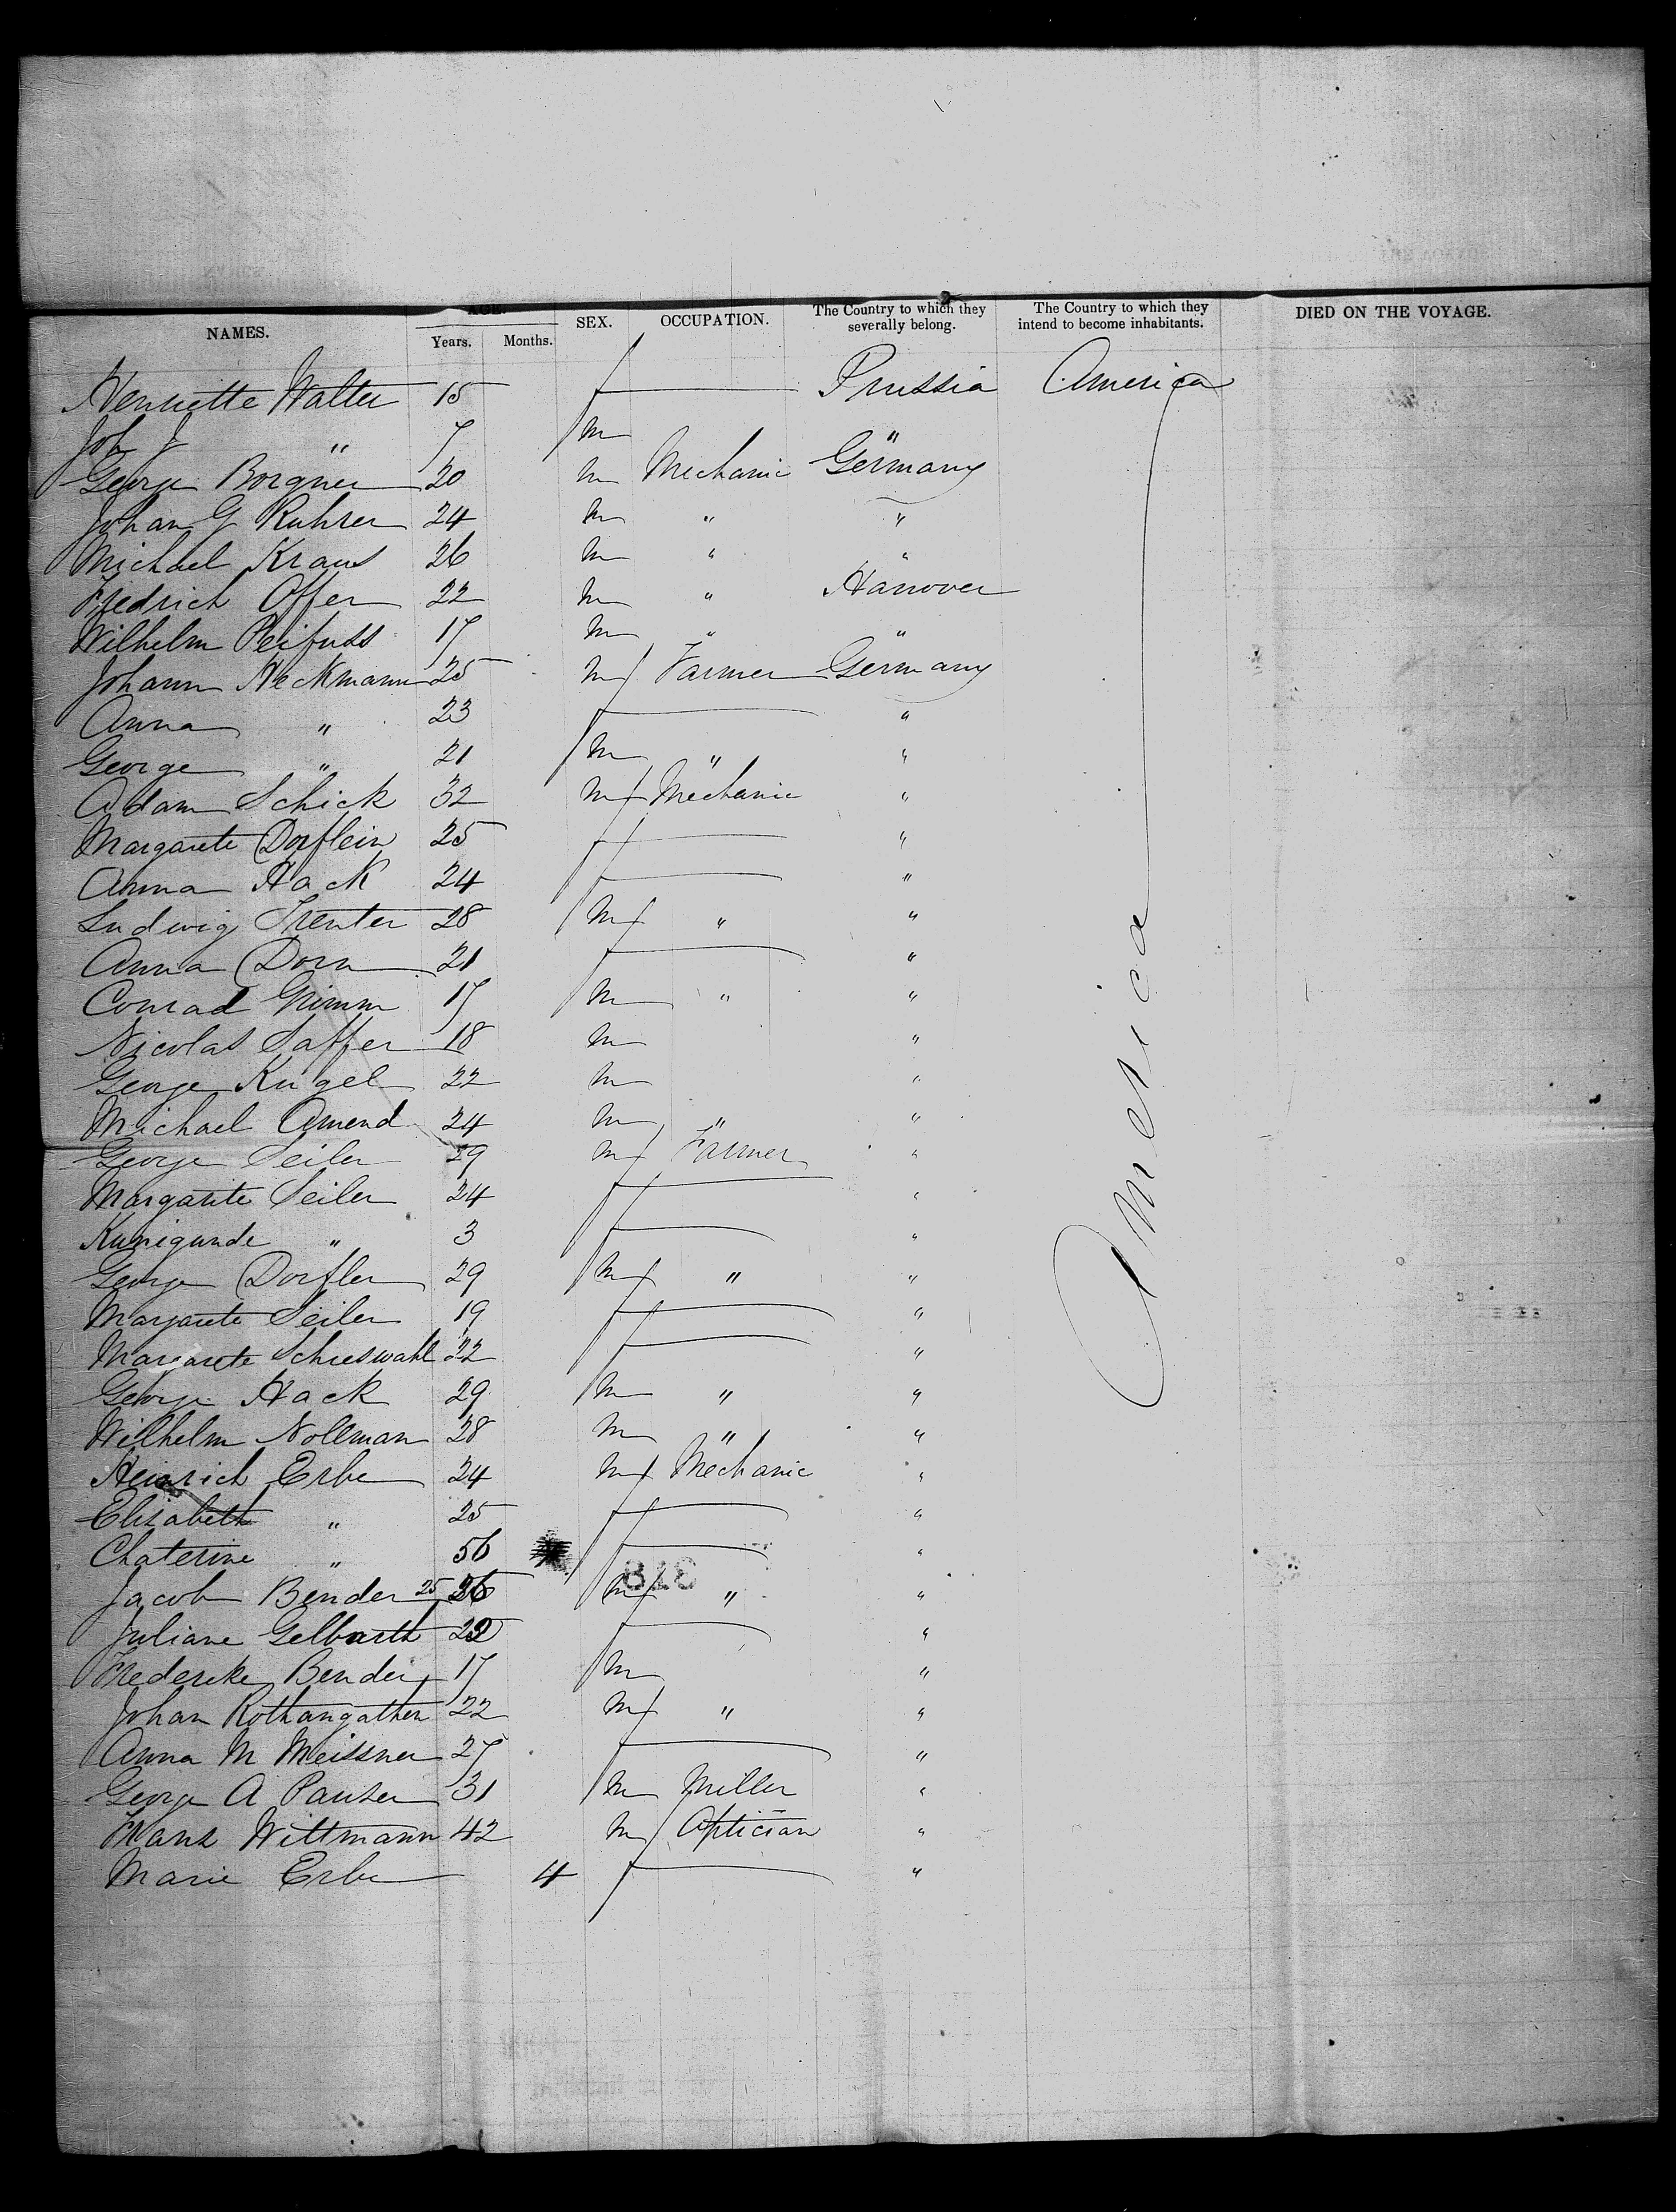 NAMES. AGE. Years. Months. SEX. OCCUPATION. The Country to which they severally belong. The Country to which they intend to become inhabitants. DIED ON THE VOYAGE.
Henriette Walter 15 f Prussia America
Joh J " 7 m "
George Borgner 20 m Mechanic Germany
Johan G Ruhrer 24 m " "
Michael Kraus 26 m " "
Fredrich Offer 22 m " Hanover
Wilhelm Peifuss 17 m " "
Johann Heckmann 25 m Farmer Germany
Anna " 23 f "
George " 21 m " "
Adam Schick 32 m Mechanic "
Margarete Dorflein 25 f "
Anna Hack 24 f "
Ludwig Trenter 28 m " "
Anna Dorn 21 f "
Conrad Grimm 17 m " "
Nicolas Saffer 18 m "
George Kugel 22 m "
Michael Amend 24 m " "
George Seiler 29 m Farmer "
Margarite Seiler 24 f "
Kunigunde " 3 f "
George Dorfler 29 m " "
Margarete Seiler 19 f "
Margarete Schieswahl 22 f "
George Hack 29 m " "
Wilhelm Nollman 28 m " "
Heinrich Erbe 24 m Mechanic "
Elisabeth " 25 f "
Chaterine " 56 f "
Jacob Bender 25 m " "
Juliane Gelbarth f "
Frederike Bender 17 m "
Johan Rothangather 22 m " "
Anna M Meissner 27 f "
George A Pauser 31 m Miller "
Franz Wittmann 42 m Optician "
Marie Erbe 4 f "
America
378